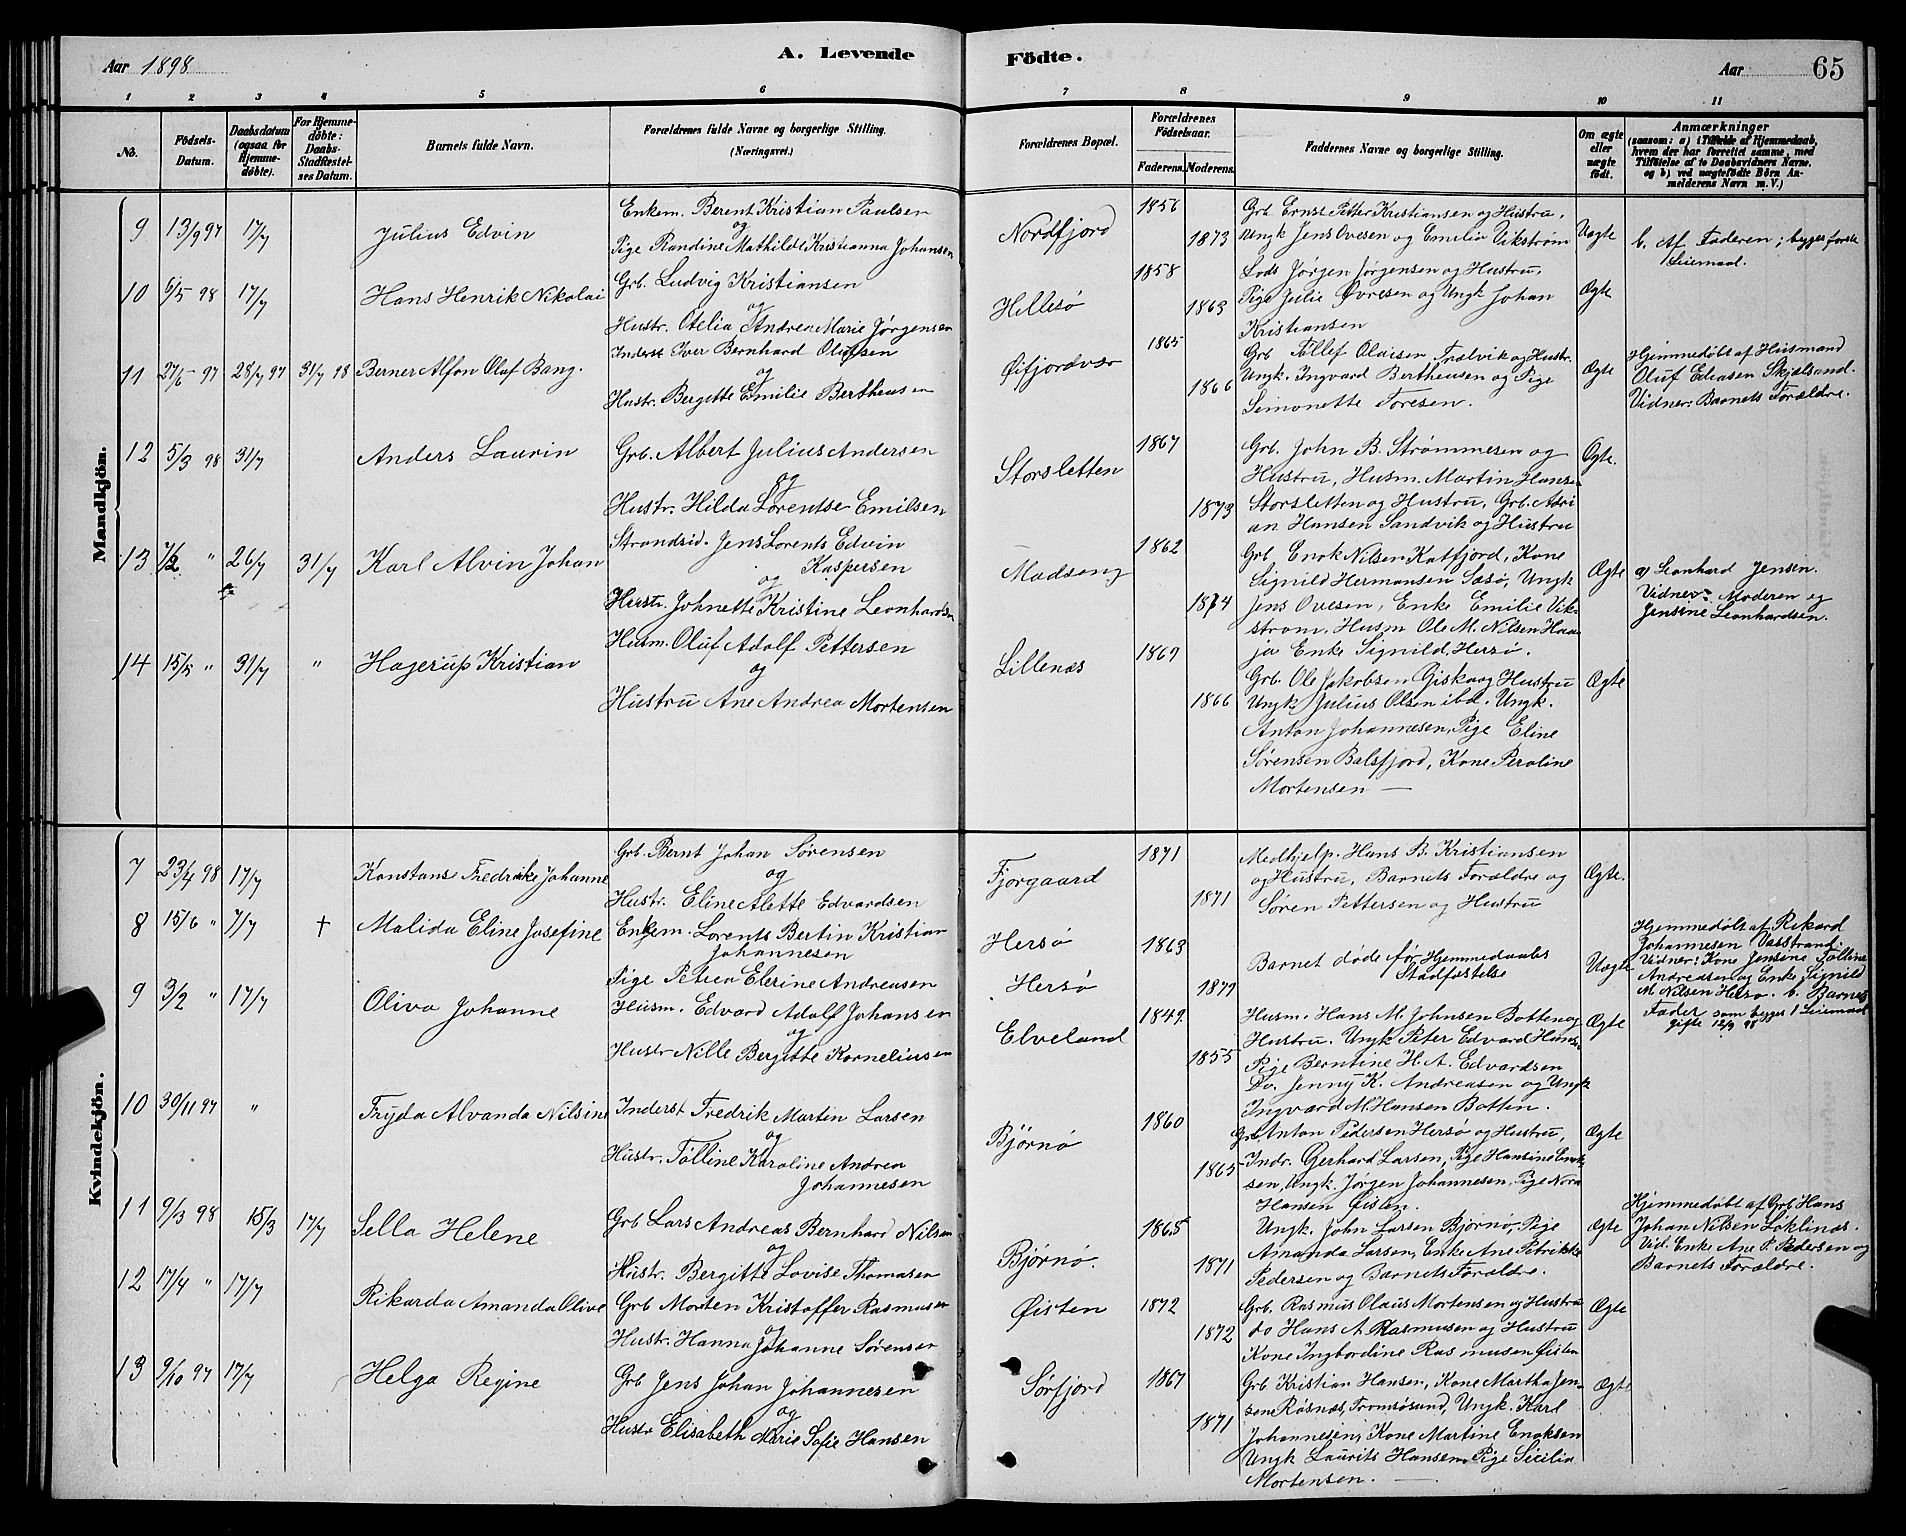 Aar 1898
A. Levende
Födte.
Aar
65
1 2 3 4 5 6 7 8 9 10 11
No.
Födsels-
Datum.
Daabsdatum
(ogsaa for
Hjemme-
döbte).
For Hjemme-
döbte:
Daabs-
Stadfæstel-
ses Datum.
Barnets fulde Navn.
Forældrenes fulde Navne og borgerlige Stilling.
(Næringsvei.)
Forældrenes Bopæl.
Forældrenes
Födselsaar.
Faderens. Moderens.
Faddernes Navne og borgerlige Stilling.
Om ægte
eller
uægte
födt.
Anmærkninger
(saasom: a) i Tilfælde af Hjemmedaab,
hvem der har forrettet samme, med
Tilföielse af to Daabsvidners Navne,
og b) ved uægtefödte Börn An-
melderens Navn m. V.)
Mandkjön.
9 13/9 97 17/7 Julius Edvin
Enkem. Berent Kristian Paulsen
og
Pige Randine Mathilde Kristianna Johansen
Nordfjord
1856
1873
Grb. Ernst Petter Kristiansen og Hustru,
Ungk Jens Ovesen og Emelie Vikstrøm
Uægte
b. Af Faderen; begges første
Leiermaal.
10 6/5 98 17/7 Hans Henrik Nikolai
Grb. Ludvig Kristiansen
og
Hustr. Otelia Andrea Marie Jørgensen
Hillesø
1858
1863
Lods Jørgen Jørgensen og Hustru,
Pige Julie Øvresen og Ungk Johan
Kristiansen
Ægte
11 27/6 97 28/7 97 31/7 98 Berner Alfon Oluf Bang.
Inderst Iver Bernhard Olufsen
og
Hustr. Bergette Emilie Bertheusen
Øifjordvær
1865
1866
Grb Tollef Olaisen Trælvik og Hustr.
Ungk. Ingvard Bertheusen og Pige
Simonette Toresen.
Ægte
Hjemmedøbt af Husmand
Oluf Eliasen Skjælsand.
Vidner: Barnets Forældre.
12 5/3 98 31/7 Anders Laurin
Grb. Albert Julius Andersen
og
Hustr. Hilda Lorentse Emilsen
Storsletten
1867
1873
Grb. John B. Strømmesen og
Hustru, Husm. Martin Hans-
Storsletten og Hustru, Grb. Adri
an Hansen Sandvik og Hustru
Ægte.
13 7/2 " 26/7 31/7 Karl Alvin Johan
Strandsid. Jens Lorents Edvin
Kaspersen
og
Hustr. Johnette Kristine Leonhardsen
Madseng
1862
1874
Grb Enok Nilsen Katfjord, Kone
Signild Hermansen Sæsø, Ungk
Jens Ovesen, Enke Emilie Vik-
strøm, Husm Ole M. Nilsen Haa-
ja Enke Signild Hersø.
Ægte
a) Leonhard Jensen.
Vidner: Moderen og
Jensine Leonhardsen.
14 15/5 " 31/7 " Hagerup Kristian
Husm. Oluf Adolf Pettersen
og
Hustru Ane Andrea Mortensen
Lillenæs
1869
1866
Grb. Ole Jakobsen Giska og Hustru
Ungk Julius Olsen ibd. Ungk.
Anton Johannesen, Pige Eline
Sørensen Balsfjord, Kone Peroline
Mortensen
Ægte
Kvindekjön.
7 23/4 98 17/7 Konstanse Fredrikke Johanne
Grb. Bernt Johan Sørensen
og
Hustr. Eline Alette Edvardsen
Fjorgaard
1871
1871
Medhjelp. Hans B. Kristiansen
og Hustru, Barnets Forældre og
Søren Pettersen og Hustru
Ægte.
8 15/6 " 7/7 † Malida Eline Josefine
Enkem. Lorents Bertin Kristian
Johannesen
Pige Petrea Elerine Andreasen
Hersø
Hersø
1863
1877
Barnet døde før Hjemmedaabs
Stadfæstelse
Uægte
Hjemmedøbt af Rikard
Johannesen Vasstrand.
Vidner: Kone Jensine Tolline
Andreasen og Enke Signild
M Nilsen Hersø. b. Barnets
Fader som begges 1 Leiermaal
gifte 12/9 98
9 3/2 " 17/7 Oliva Johanne
Husm. Edvard Adolf Johansen
og
Hustr Nille Bergitte Korneliusen
Elveland
1849
1855
Husm. Hans M. Johnsen Botten og
Hustru. Ungk Peter Edvard Hans-
Pige Berntine H. A. Edvardsen
Do. Jenny K. Andreasen og Ungk
Ingvard M. Hansen Botten.
Ægte
10 30/11 97 " Fryda Alvanda Nilsine
Inderst Fredrik Martin Larsen
og
Hustr. Tolline Karoline Andrea
Johannesen
Bjørnø
1860
1865
Grb Anton Pedersen Hersø og Hustru,
Indr. Gerhard Larsen, Pige Hansine Enok-
sen, Ungk. Jørgen Johannesen, Pige Nora
Hansen Øisten.
Ægte
11 9/3 98 15/3 17/7 Sella Helene
Grb Lars Andreas Bernhard Nilsen
og
Hustr. Bergitte Lovise Thomasen
Bjørnø.
1865
1871
Ungk. John Larsen Bjørnø, Pige
Amanda Larsen, Enke Ane Petrikke
Pedersen og Barnets Forældre.
Ægte
Hjemmedøbt af Grb Hans
Johan Nilsen Løklinæs.
Vid. Enke Ane P. Pedersen og
Barnets Forældre.
12 17/4 " 17/7 Rikarda Amanda Olive
Grb Morten Kristoffer Rasmusen
og
Hustr. Hanna Johanne Sørensen
Øisten
1872
1872
Grb. Rasmus Olaus Mortensen og Hustru
do Hans A. Rasmusen og Hustru
Kone Ingbordine Rasmusen Øisten
Ægte
13 9/10 97 17/7 Helga Regine
Grb Jens Johan Johannesen
og
Hustr Elisabeth Marie Sofie Hansen
Sørfjord
1867
1871
Grb Kristian Hansen, Kone Martha Jen-
sen Røsnæs, Tromsøsund, Ungk. Karl
Johannesen, Kone Martine Enoksen
Ungk Laurits Hansen, Pige Sicilia
Mortensen.
Ægte